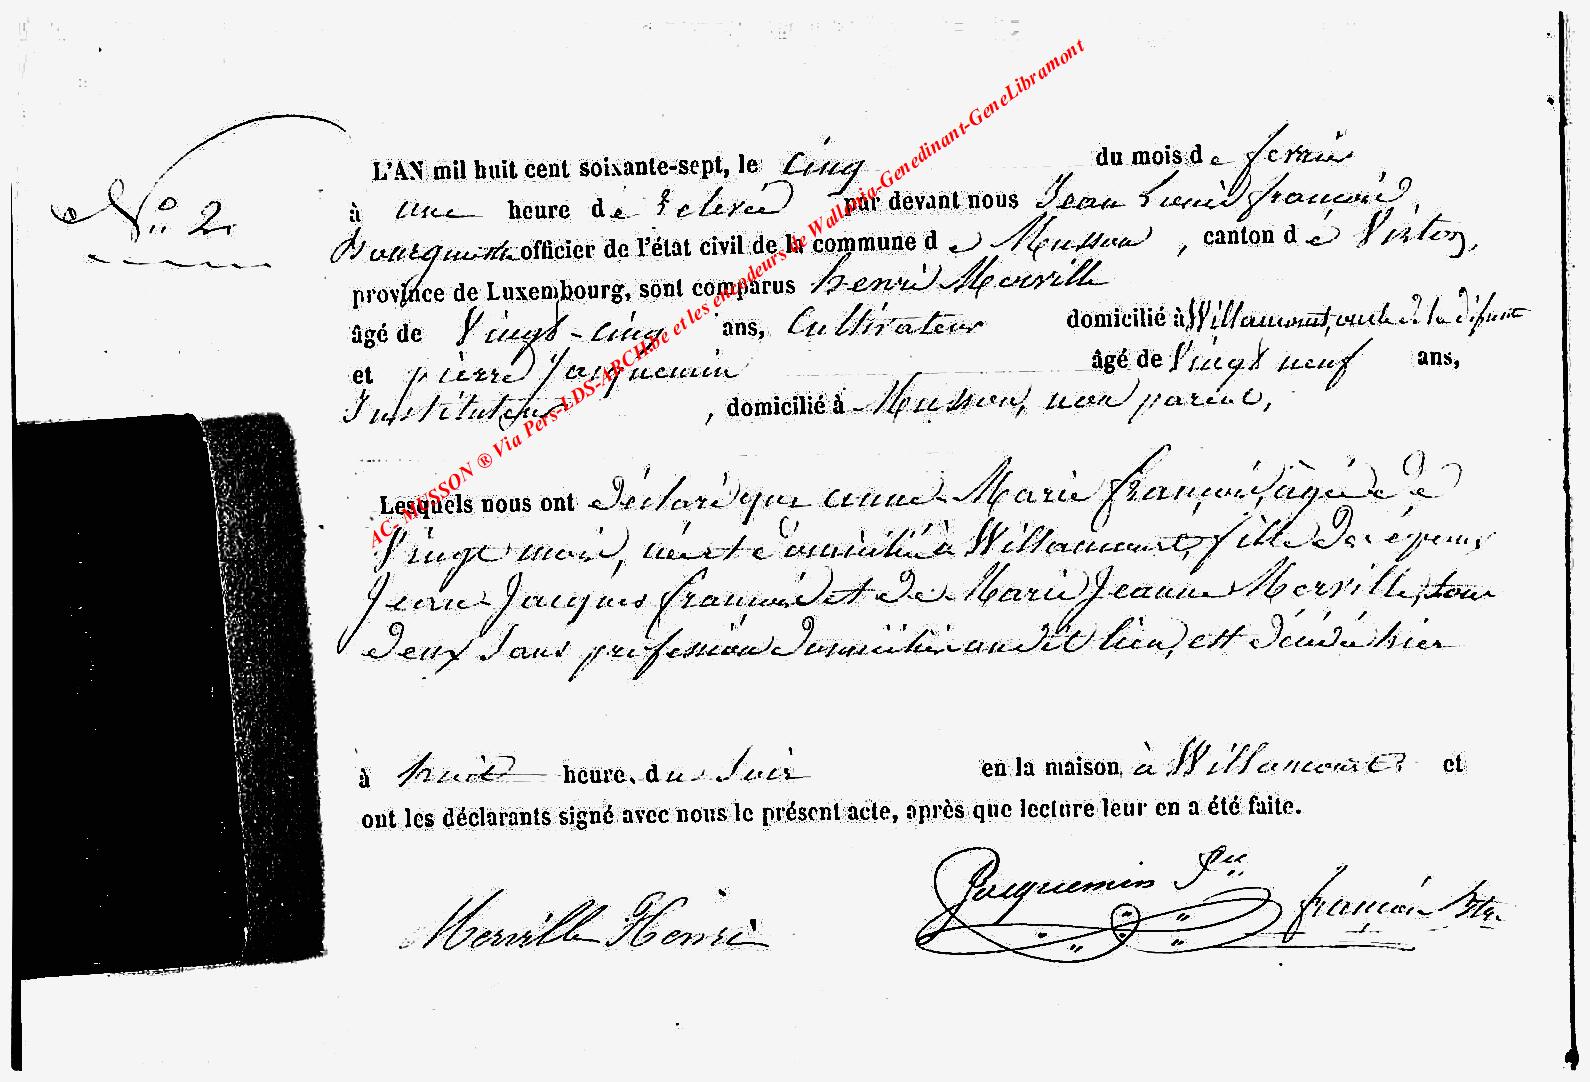 N° 2.
L'AN mil huit cent soixante-sept, le cinq du mois de fevrier
à une heure de relevée par devant nous Jean Louis françois,
Bourgmestre officier de l'état civil de la commune de Musson, canton de Virton,
province de Luxembourg, sont comparus henri Merville
âgé de Vingt-cinq ans, Cultivateur domicilié à Willancourt, oncle de la défunte
et pierre Jacquemin âgé de Vingt neuf ans,
Instituteur, domicilié à Musson, non parent,
Lesquels nous ont déclaré que anne Marie françois, âgée de
Vingt mois, née et domiciliée à Willancourt, fille des époux
Jean Jacques françois et de Marie Jeanne Merville, tous
deux sans profession domiciliés audit lieu, est décédée hier
à huit heure. du soir en la maison à Willancourt et
ont les déclarants signé avec nous le présent acte, après que lecture leur en a été faite.
Merville Henri
Jacquemin Prre
françois Btre
AC- MUSSON ® Via Pers-LDS-ARCH.be et les encodeurs de Wallonia-Genedinant-GeneLibramont